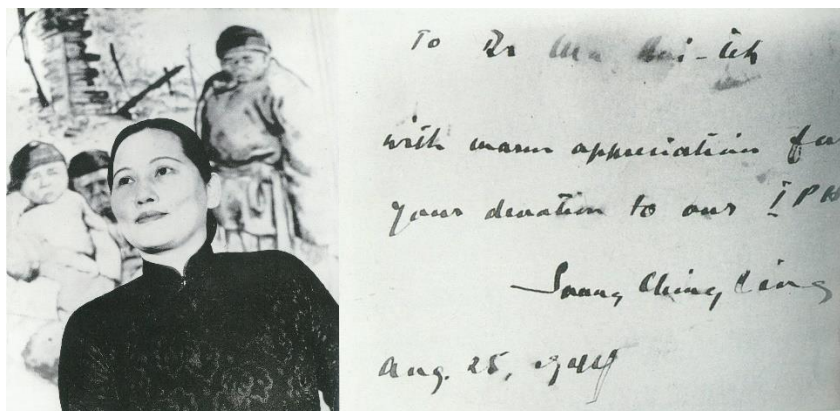 To Dr Ma Hai-teh
with warm appreciation for
your devotion to our IPH
Soong Ching Ling
Aug. 25, 1944